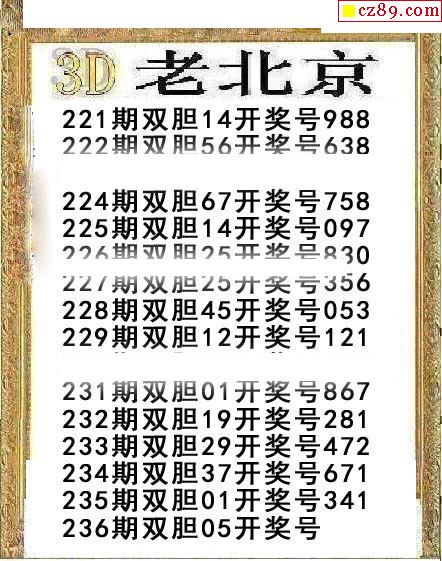 cz89.com
3D 老北京
221期双胆14开奖号988
222期双胆56开奖号638
224期双胆67开奖号758
225期双胆14开奖号097
226期双胆25开奖号830
227期双胆25开奖号356
228期双胆45开奖号053
229期双胆12开奖号121
231期双胆01开奖号867
232期双胆19开奖号281
233期双胆29开奖号472
234期双胆37开奖号671
235期双胆01开奖号341
236期双胆05开奖号